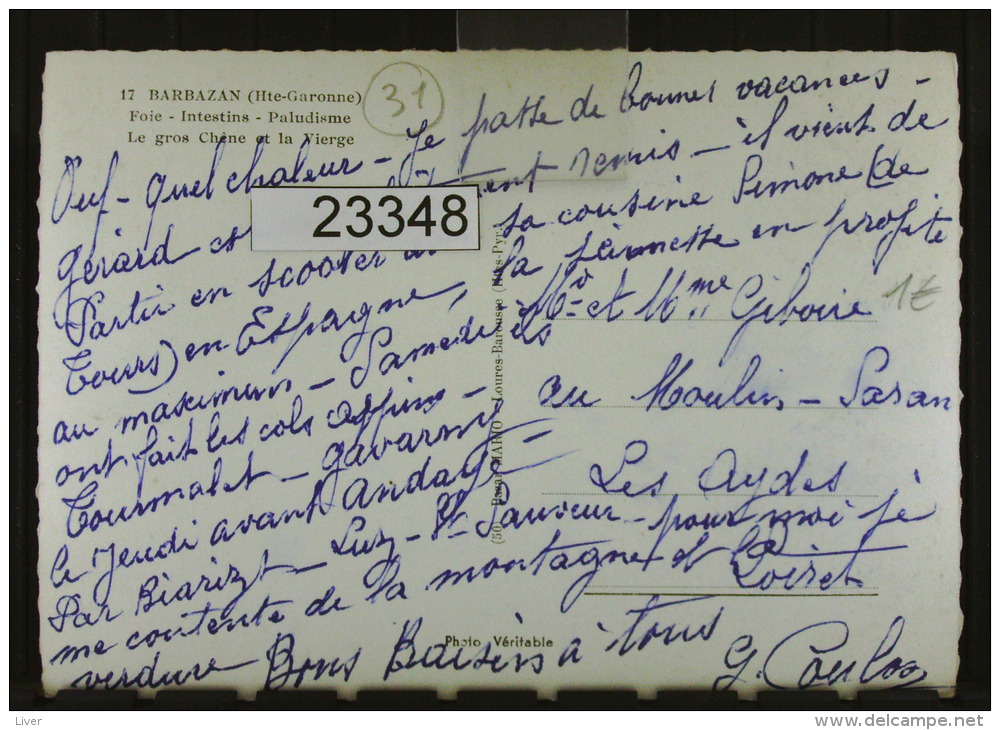 17 BARBAZAN (Hte-Garonne)
Foie - Intestins - Paludisme
Le gros Chêne et la Vierge
31
Ouf - quel chaleur - Je passe de bonnes vacances -
gérard et remis - il vient de
Partir en scooter sa cousine Simone (de
Tours) en Espagne, la en profite
au maximum - Samedi ils
ont fait les cols
Tourmalet - gavarny
le Jeudi avant Andaye -
Par Biarizt - Luz - St Sauveur - pour moi je
me contente de la montagne et
verdure Bons Baisers à tous
G. Coulon
23348
1€
Mr et Mme Giboire
au Moulin - Saran
Les Aydes
Loiret
(50) Bazar MARIO Loures-Barousse (Htes-Pyr.)
Photo Véritable
Liver
delcampe.net